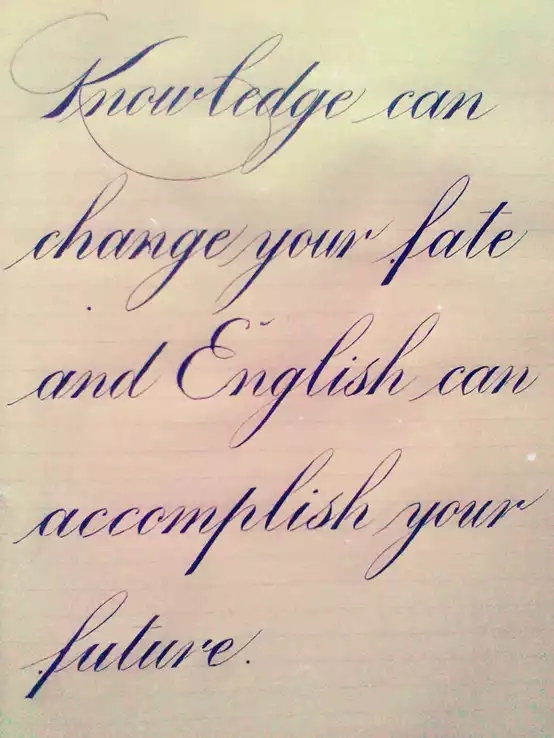 Knowledge can
change your fate
and English can
accomplish your
future.